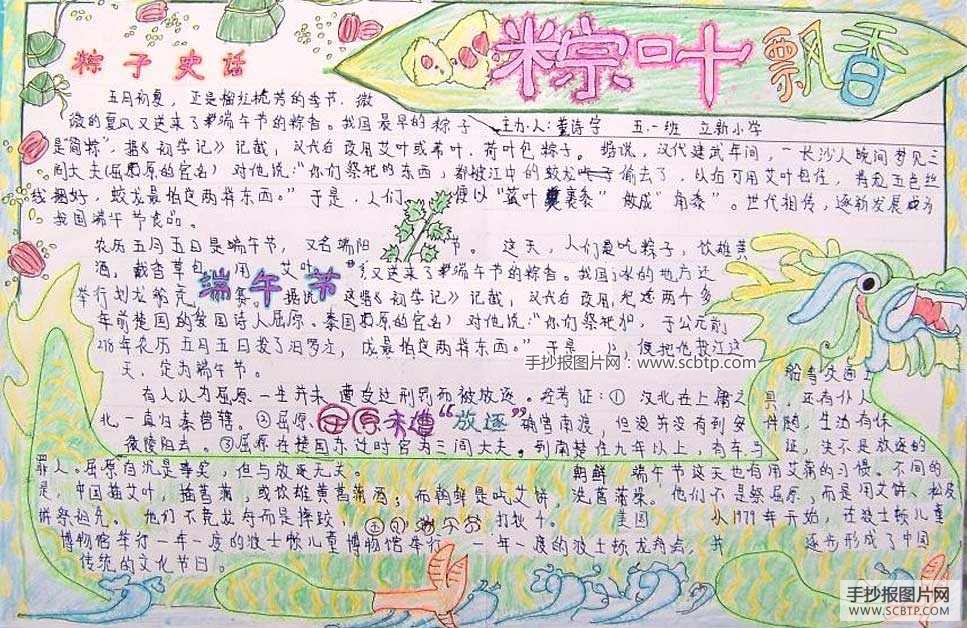 粽叶飘香
粽子史话
五月初夏,正是榴红桃芳的季节,微
微的夏风又送来了端午节的粽香。我国最早的粽子
主办人:董诗宇 五.一班 立新小学
是“筒粽”,据《初学记》记载,汉代白 改用艾叶或苇叶、荷叶包粽子。据说,汉代建武年间,一长沙人晚间梦见三
闾大夫(屈原的官名)对他说:“你们祭祀的东西,都被江中的蛟龙偷去了,以后可用艾叶包住,将五色丝
线捆好,蛟龙最怕这两样东西。”于是,人们 便以“菰叶裹黍”做成“角黍”。世代相传,逐渐发展成为
我国端午节食品。
农历五月五日是端午节,又名端阳 节。这天,人们要吃粽子,饮雄黄
酒,戴香草包,用艾叶 又送来了端午节的粽香。我国 的地方还
端午节
举行划龙船竞 赛。据说 这据《初学记》记载,汉代白 改用 两千多
年前楚国的爱国诗人屈原。秦国 原的官名)对他说:“你们祭祀 ,于公元前
278年农历五月五日投了汨罗江,成最怕这两样东西。”于是 便把他投江这
天,定为端午节。
手抄报图片网:www.scbtp.com
有人认为屈原一生并未遭女这刑罚而被放逐。经考证:① 汉北在上庸之
北一直归秦管辖。②屈原
屈原未遭“放逐”
③屈原在楚国东迁时官为三闾大夫。到南楚住九年以上,有车马
证,决不是放逐的
罪人。屈原自沉是事实,但与放逐无关。 朝鲜 端午节这天也有用艾蒿的习惯。不同的
是,中国插艾叶,插菖蒲,或饮雄黄菖蒲酒;而朝鲜是吃艾饼,洗菖蒲菜。他们不是祭屈原,而是用艾饼、松皮
饼祭祖先。他们不竞龙舟而是摔跤, 打秋千。 美国 从1979年开始,在波士顿儿童
博物馆举行一年一度的波士顿儿童博物馆举行 一年一度的波士顿龙舟会,并 逐步形成了中国
传统的文化节日。
手抄报图片网
WWW.SCBTP.COM